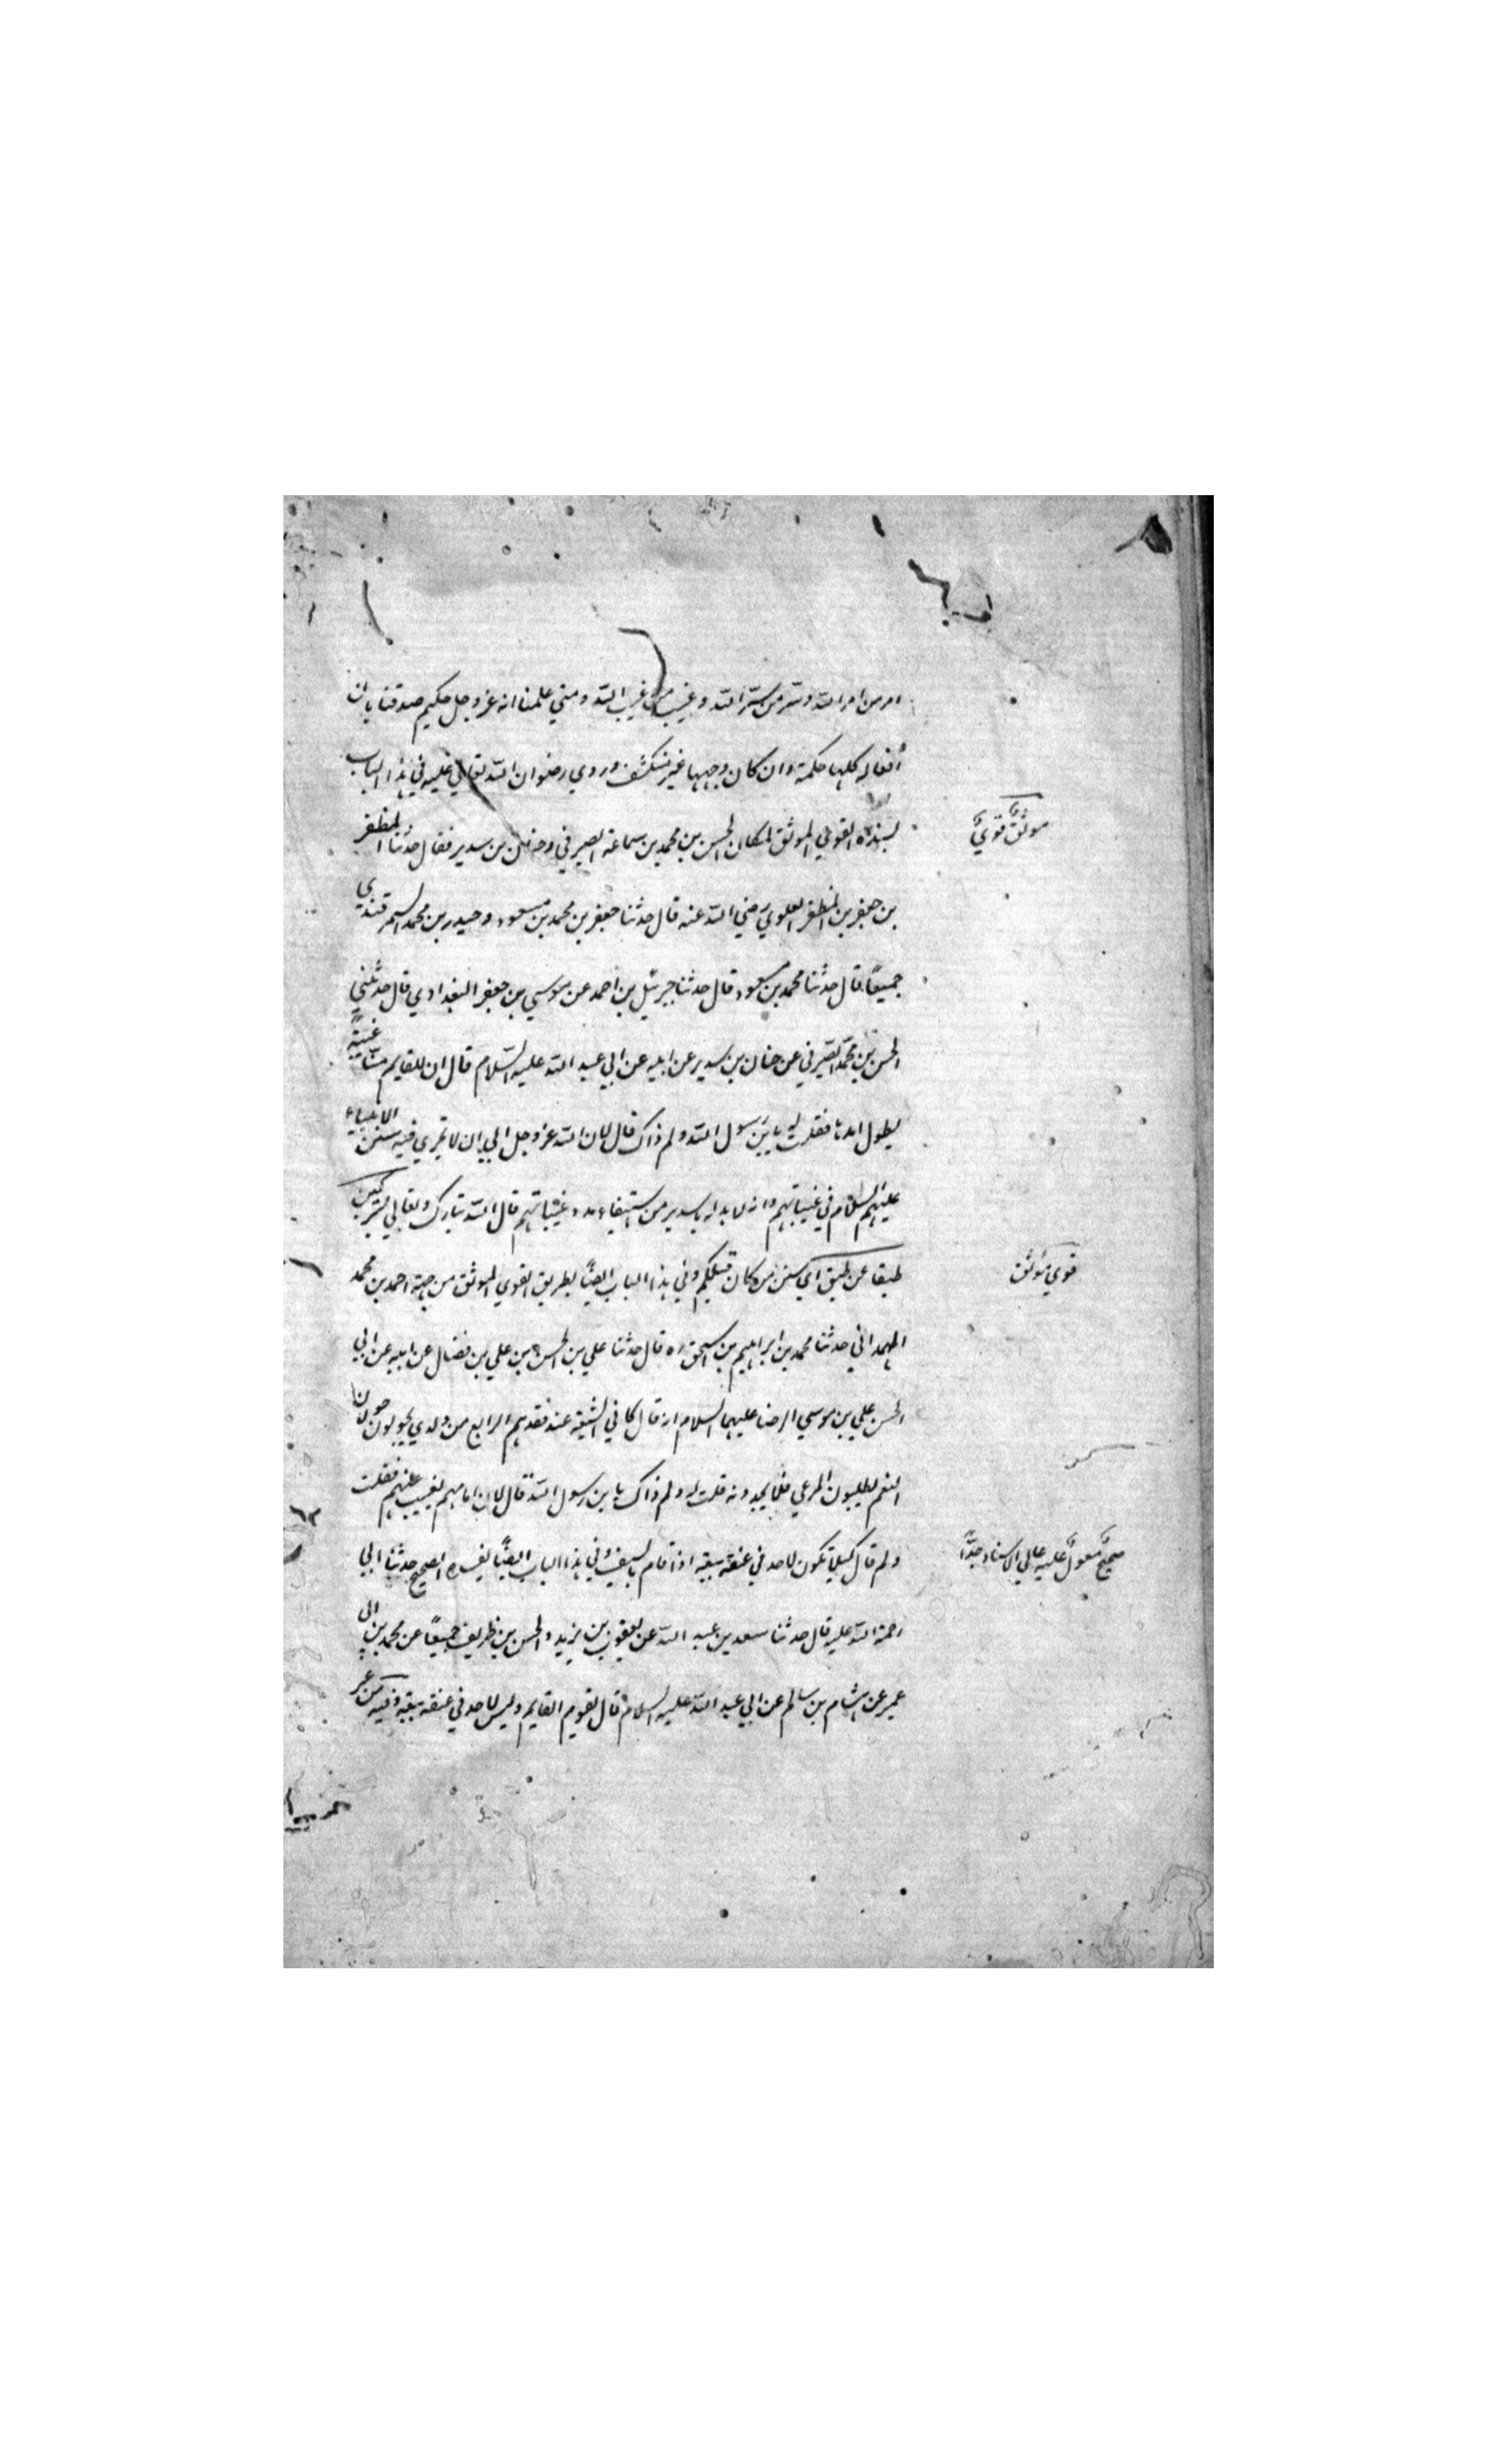 امر من امر الله وسر من سر الله وغيب من غيب الله ومتي علمنا انه عزوجل حكيم صدقنا بان
أفعاله كلها حكمة وان كان وجهها غير منكشف وروي رضوان الله تعالي عليه في هذا الباب
بسنده القوي الموثق لمكان الحسن بن محمد بن سماعة الصيرفي وحنان بن سدير فقال حدثنا المظفر
موثق قوي
بن جعفر بن المظفر العلوي رضي الله عنه قال حدثنا جعفر بن محمد بن مسعود وحيدر بن محمد السمرقندي
جميعًا قال حدثنا محمد بن مسعود قال حدثنا جبرئيل بن احمد عن موسي بن جعفر البغدادي قال حدثني
الحسن بن محمد الصيرفي عن حنان بن سدير عن ابيه عن ابي عبد الله عليه السلام قال ان للقايم منّا غيبةً
يطول امدها فقلت له يابن رسول الله ولم ذاك قال لان الله عزوجل ابي ان لا تجري فيه سنن الانبياء
عليهم السلام في غيباتهم وانه لا بد له يا سدير من استيفاء مدد غيباتهم قال الله تبارك وتعالي لتركبن
طبقا عن طبق اي سنن من كان قبلكم وفي هذا الباب ايضًا بطريق القوي الموثق من جهة احمد بن محمد
قوي موثق
الهمداني حدثنا محمد بن ابراهيم بن اسحق ره قال حدثنا علي بن الحسن بن علي بن فضال عن ابيه عن ابي
الحسن علي بن موسي الرضا عليهما السلام انه قال كاني بالشيعة عند فقدهم الرابع من ولدي يجولون جولان
النعم يطلبون المرعي فلا يجدونه قلت له ولم ذاك يابن رسول الله قال لان امامهم يغيب عنهم فقلت
ولم قال لئلا يكون لاحد في عنقه بيعة اذا قام بالسيف وفي هذا الباب ايضًا بسنده الصحيح حدثنا ابي
صحيح معول عليه عالي الاسناد جدًا
رحمة الله عليه قال حدثنا سعد بن عبد الله عن يعقوب بن يزيد والحسن بن ظريف جميعًا عن محمد بن ابي
عمير عن هشام بن سالم عن ابي عبد الله عليه السلام قال يقوم القايم وليس لاحد في عنقه بيعة وفيه من غير